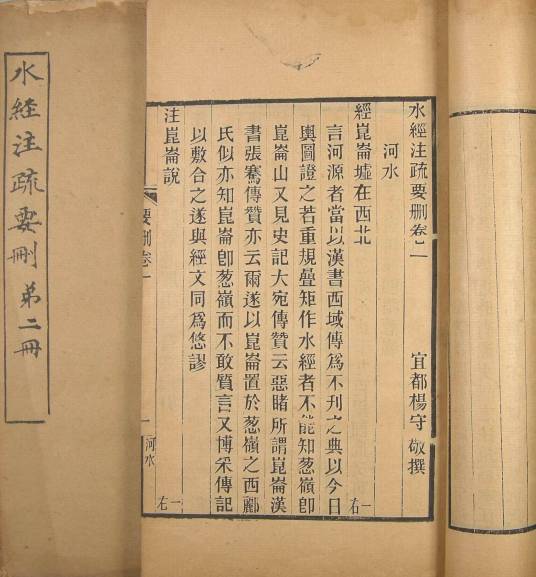 水經注疏要刪卷二
宜都楊守敬撰
河水
經崑崙墟在西北
言河源者當以漢書西域傳爲不刊之典以今日
輿圖證之若重規疊矩作水經者不能知葱嶺卽
崑崙山又見史記大宛傳贊云惡睹所謂崑崙漢
書張騫傳贊亦云爾遂以崑崙置於葱嶺之西酈
氏似亦知崑崙卽葱嶺而不敢質言又博采傳記
以敷合之遂與經文同爲悠謬
注崑崙說
要刪卷一
河水
一右
一右
水經注疏要刪 弟二冊